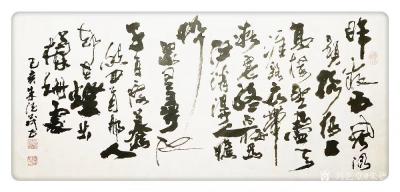 昨夜西风凋
碧树独上
高楼望尽天
涯路衣带
渐宽终不悔为
伊消得人憔
悴
众里寻他
千百度蓦
然回首那人
却在灯火
阑珊处